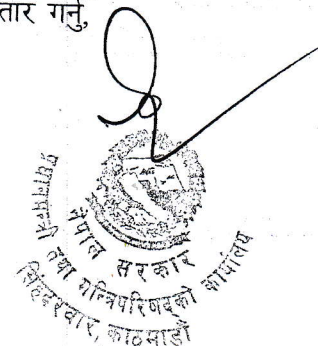 तार गर्नु,
नेपाल सरकार
प्रधानमन्त्री तथा मन्त्रिपरिषद्को कार्यालय
सिंहदरबार, काठमाडौं